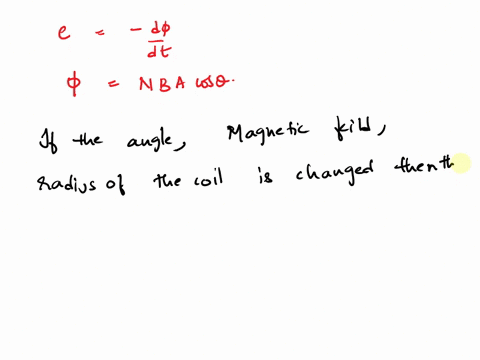 e = - dφ/dt
φ = NBA cosθ.
If the angle, Magnetic field,
radius of the coil is changed then th